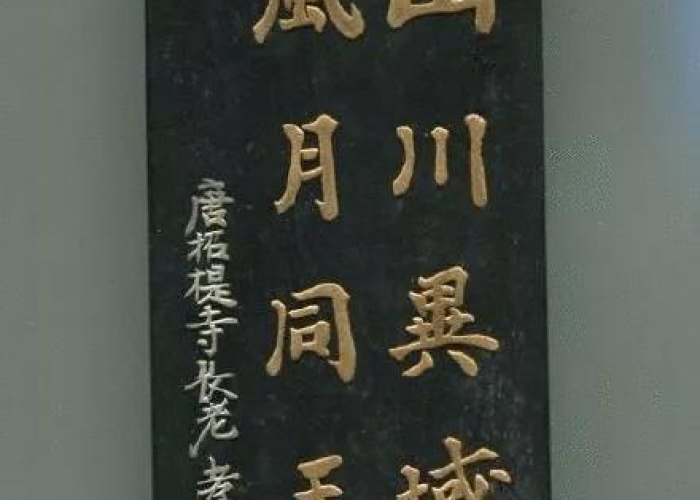 山川異域
風月同天
唐招提寺长老